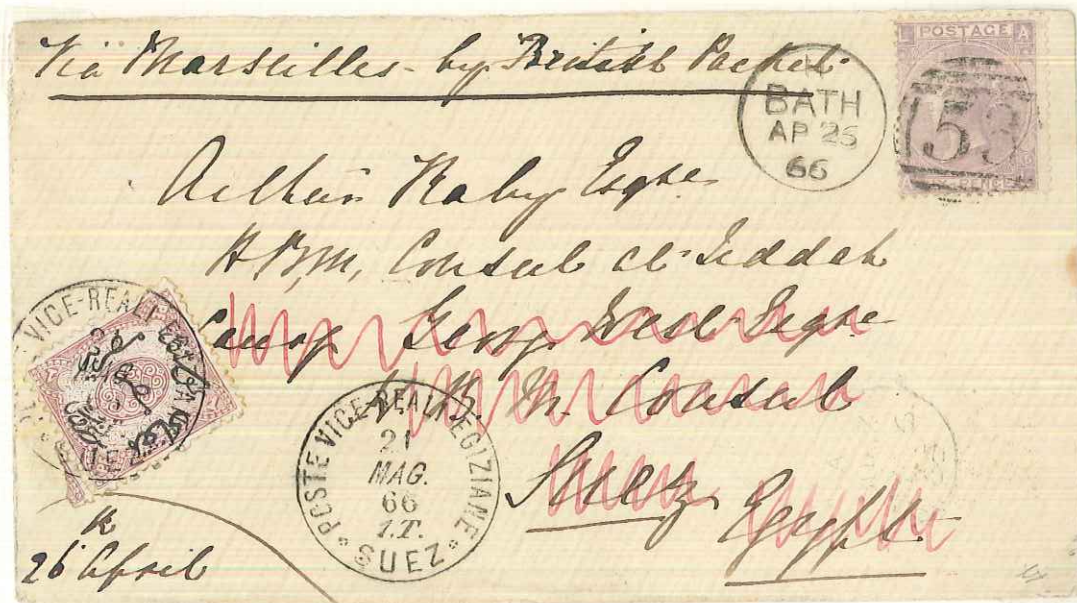 Via Marseilles - by British Packet
POSTAGE
A
H
BATH
AP 25
66
53
Arthur Raby Esqre
H.B.M. Consul at Jeddah
George West Esqre
H.B.M. Consul
Suez
Egypt
VICE-REALI
POSTE VICE-REALI EGIZIANE
21
MAG.
66
1.T.
SUEZ
26 April